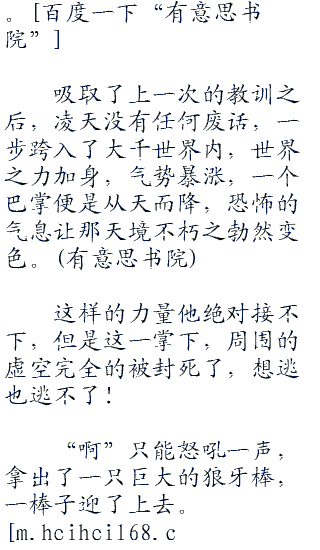 。[百度一下“有意思书
院”]
吸取了上一次的教训之
后，凌天没有任何废话，一
步跨入了大千世界内，世界
之力加身，气势暴涨，一个
巴掌便是从天而降，恐怖的
气息让那天境不朽之勃然变
色。(有意思书院)
这样的力量他绝对接不
下，但是这一掌下，周围的
虚空完全的被封死了，想逃
也逃不了！
“啊”只能怒吼一声，
拿出了一只巨大的狼牙棒，
一棒子迎了上去。
[m.hcihci168.c